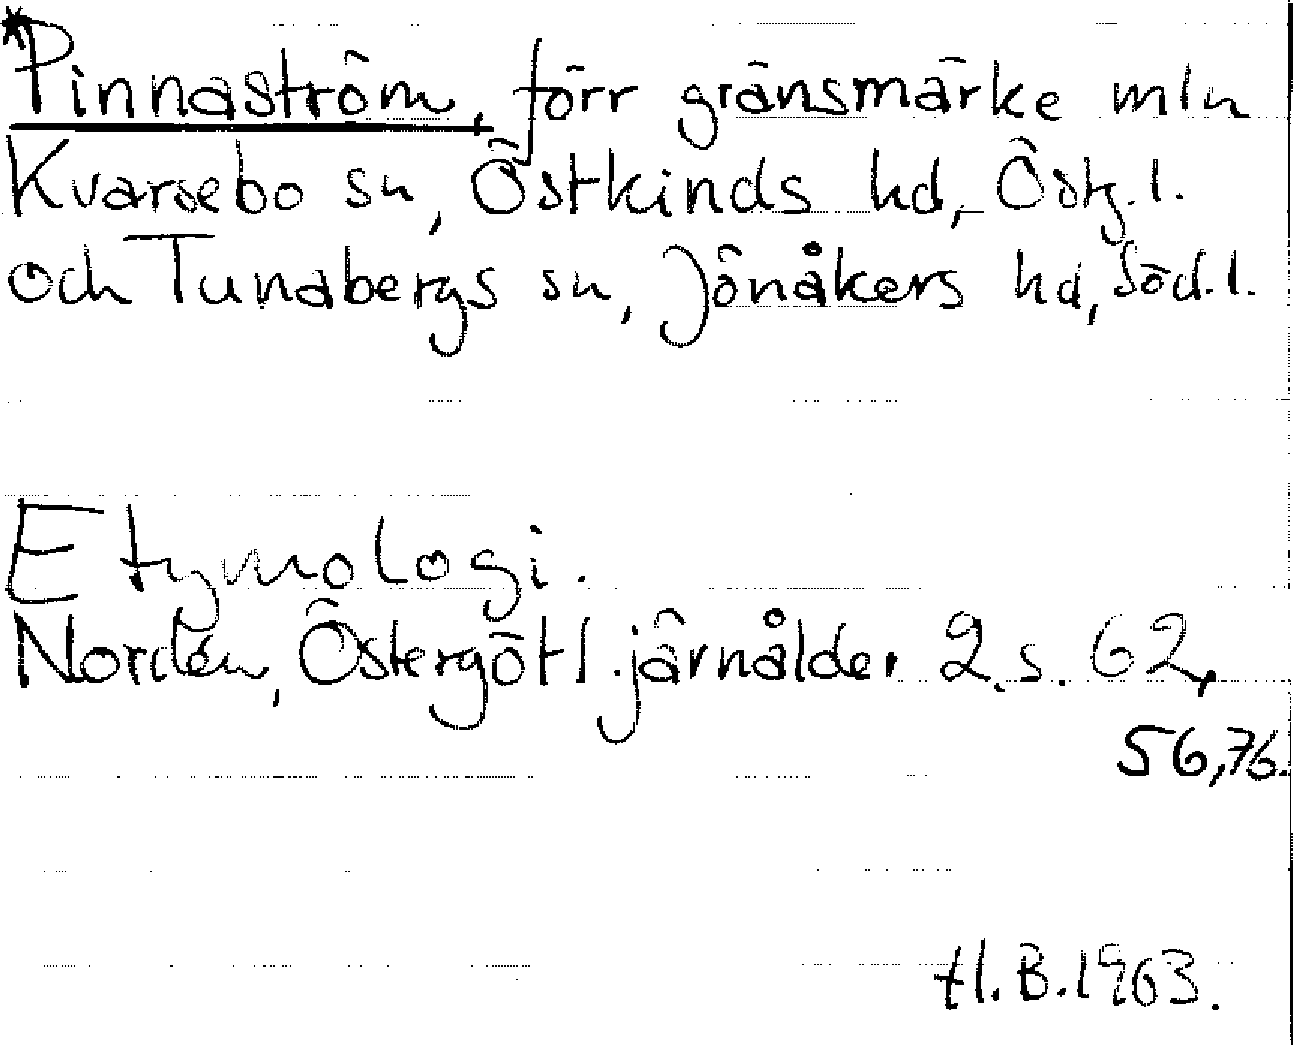 *Pinnaström, förr gränsmärke mln
Kvarsebo sn, Östkinds hd, Östg.l.
och Tunabergs sn, Jönåkers hd, Söd.l.
Etymologi.
Nordén, Östergötl. järnålder 2 s. 62,
56,76.
H.B.1963.